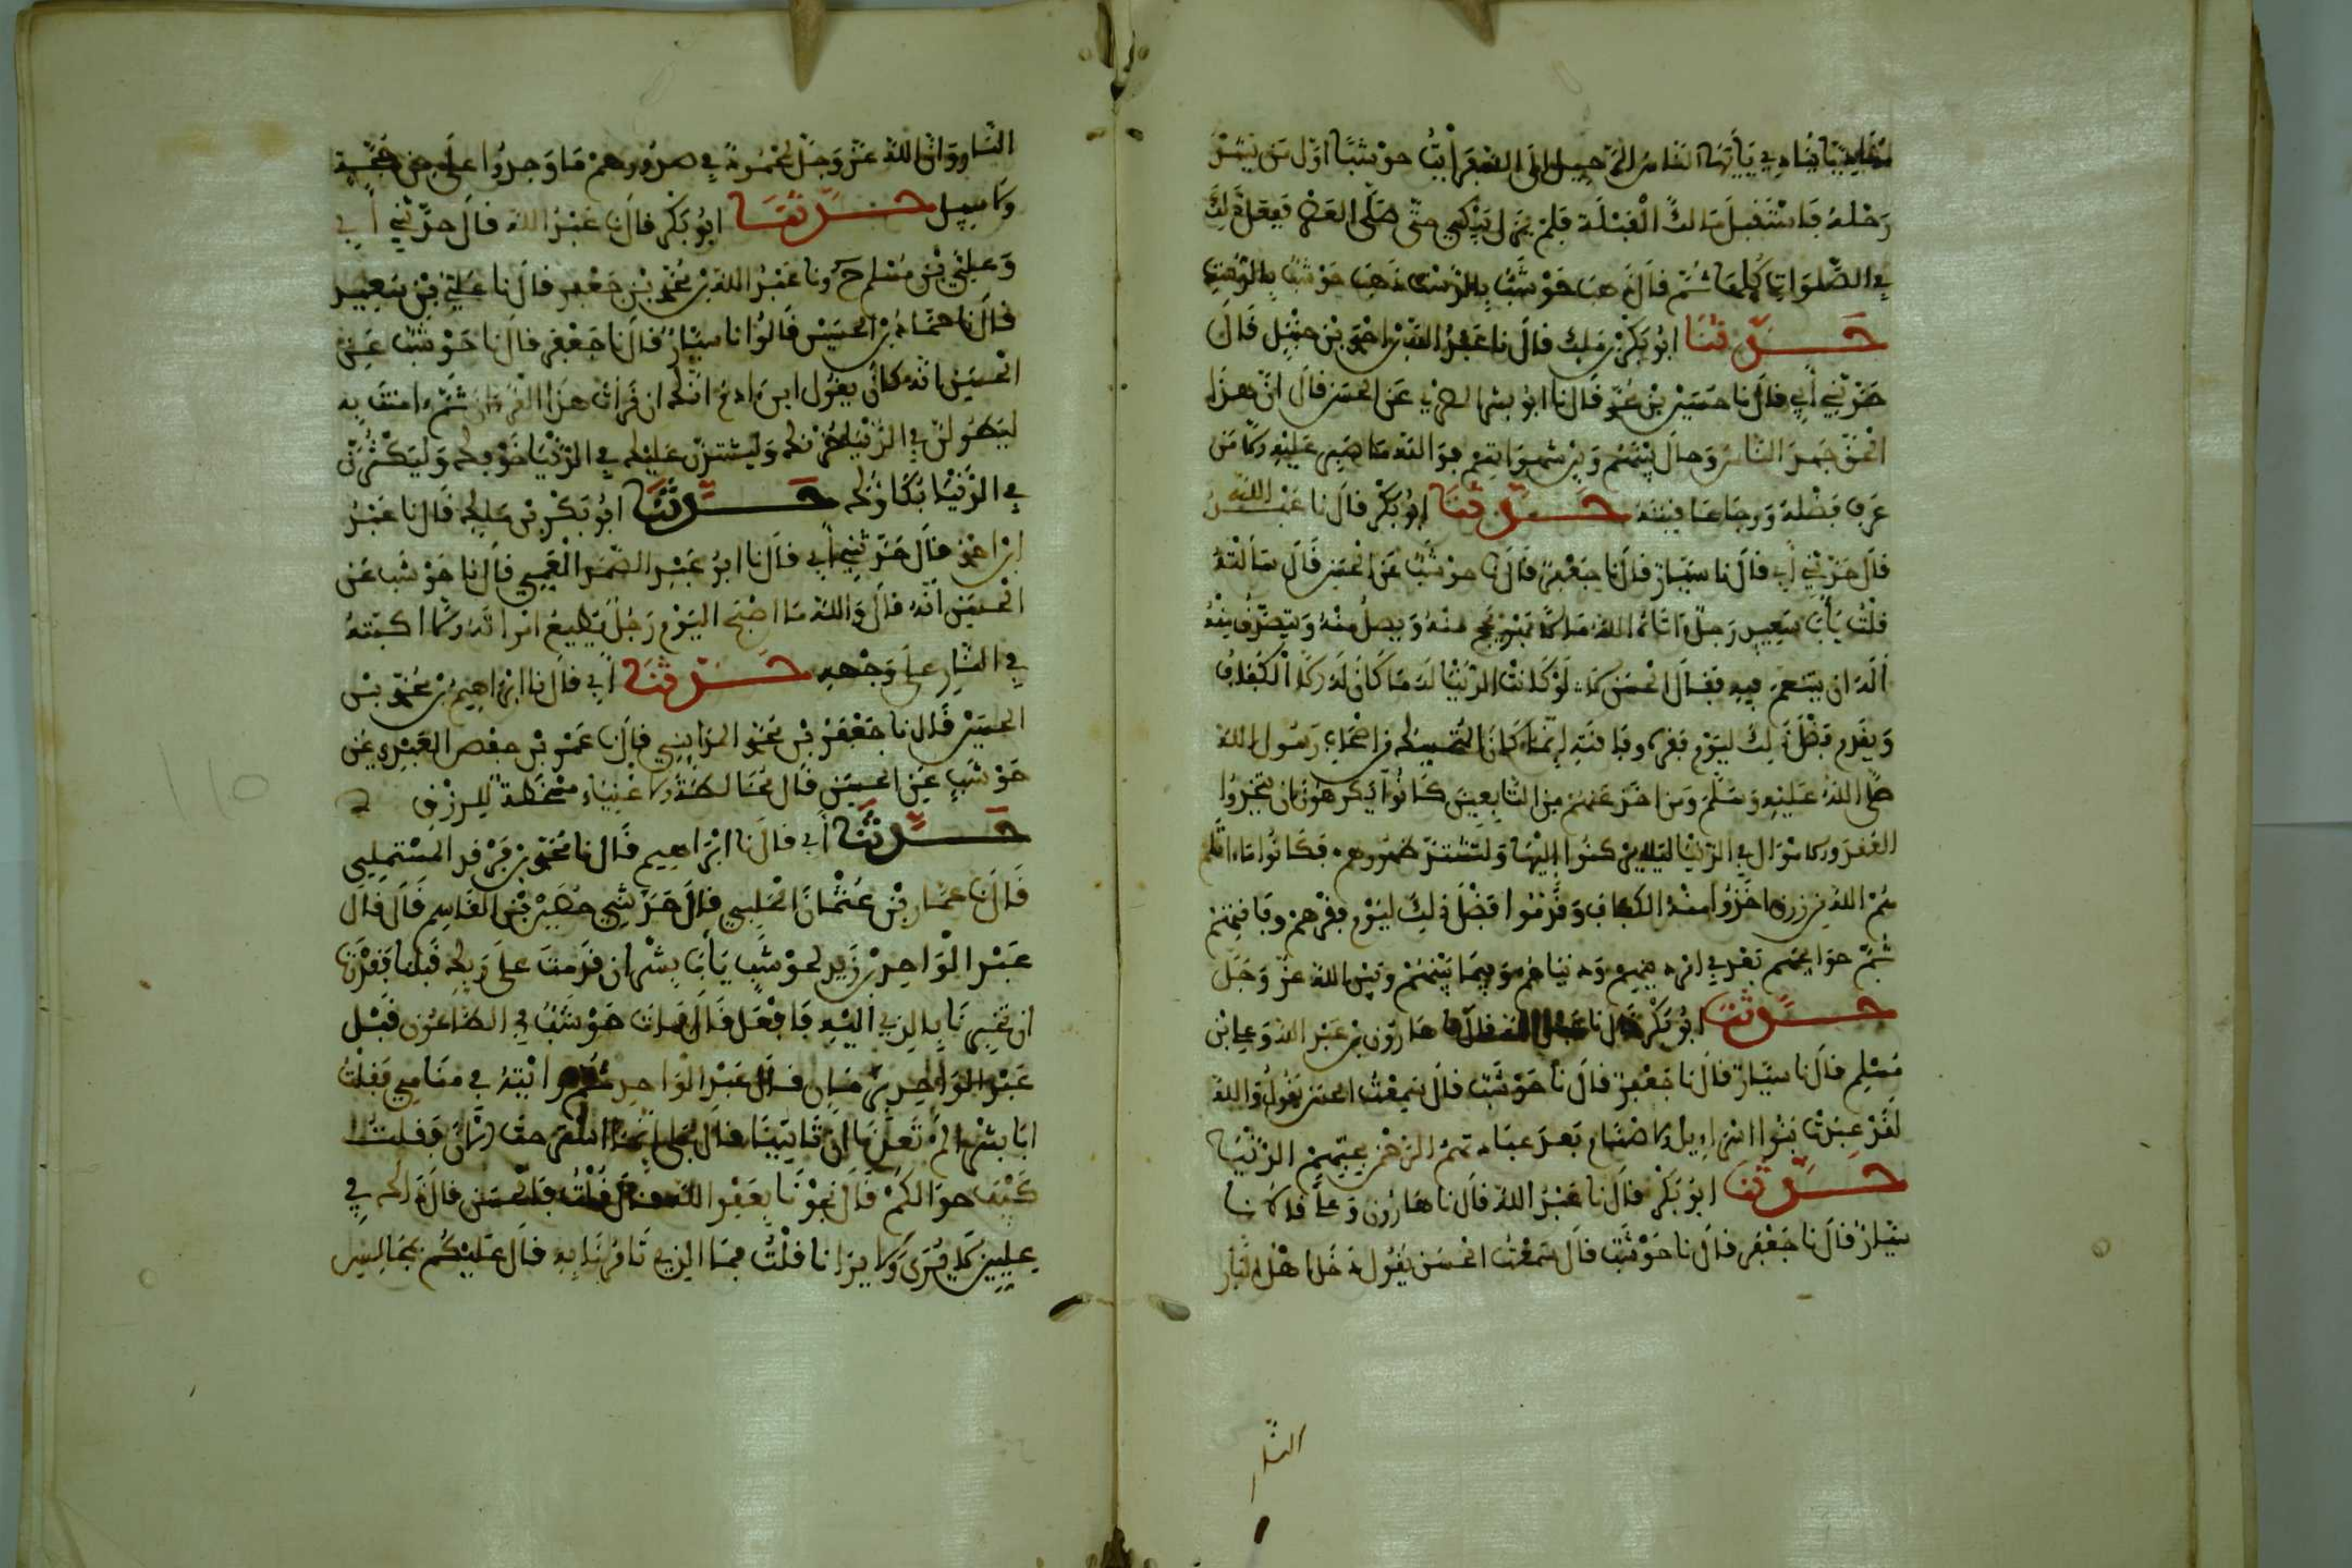 مناديا ينادي يأيها الناس الرحيل الرحيل فرأيت حوشبا اول من يشد
رحله فاستقبل مالك القبلة فلم يزل يبكي حتى صلى العصر ففعل ذلك
في الصلوات كلها ثم قال ذهب حوشب بالدست ذهب حوشب بالدست
حدثنا ابو بكر بن ملك قال نا عبد الله بن احمد بن حنبل قال
حدثني أبي قال نا حسين بن محمد قال نا ابو بشر عن الحسن قال ان هذا
الحق جهد الناس وحال بينهم وبين شهواتهم فوالله ما صبر عليه الا من
عرف فضله ورجا عاقبته حدثنا ابو بكر قال نا عبد الله
قال حدثني أبي قال نا سيار قال نا جعفر قال نا حوشب عن الحسن قال سألته
قلت يأبا سعيد رجل اتاه الله مالا فهو يحج منه ويصل منه ويتصدق منه
أله ان يتنعم فيه فقال الحسن لا لو كانت الدنيا له ما كان له الا الكفاف
ويقدم فضل ذلك ليوم فقره وفاقته إنما كان المتمسك من اصحاب رسول الله
صلى الله عليه وسلم ومن اخذ عنهم من التابعين كانوا يكرهون ان يتخذوا
العقد والاموال في الدنيا ليركنوا إليها ولتشتد ظهورهم فكانوا ما اتاهم
الله من رزق اخذوا منه الكفاف وقدموا فضل ذلك ليوم فقرهم وفاقتهم
ثم حوايجهم بعد في امر دينهم ودنياهم وفيما بينهم وبين الله عز وجل
حدثنا ابو بكر قال نا عبد الله قال نا هارون بن عبد الله وعلي بن
مسلم قال نا سيار قال نا جعفر قال نا حوشب قال سمعت الحسن يقول والله
لقد عبدت بنوا اسراءيل الاصنام بعد عبادتهم الرحمن بحبهم الدنيا
حدثنا ابو بكر قال نا عبد الله قال نا هارون وعلي قالا نا
سيار قال نا جعفر قال نا حوشب قال سمعت الحسن يقول دخل اهل النار
النار
النار وان الله عز وجل لمحمود في صدورهم ما وجدوا على الله من حجة
ولا سبيل حدثنا ابو بكر قال نا عبد الله قال حدثني أبي
وعلي بن مسلم ح ونا عبد الله بن محمد بن جعفر قال نا علي بن سعيد
قال نا حماد بن الحسين قالوا نا سيار قال نا جعفر قال نا حوشب عن
الحسن انه كان يقول ابن ادم انك ان قرأت هذا القرءان ثم ءامنت به
ليطولن في الدنيا حزنك وليشتدن عليك في الدنيا خوفك وليكثرن
في الدنيا بكاؤك حدثنا ابو بكر بن ملك قال نا عبد الله
ابن احمد قال حدثني أبي قال نا ابو عبد الصمد العمي قال نا حوشب عن
الحسن أنه قال والله ما اصبح اليوم رجل يطيع امرأته الا اكبته
في النار على وجهه حدثنا أبي قال نا ابراهيم بن محمد بن
الحسين قال نا جعفر بن محمد المدايني قال نا عمر بن حفص العبدي عن
حوشب عن الحسن قال مخالطة الاغنياء مسخطة للرزق
حدثنا أبي قال نا ابراهيم قال نا محمد بن المستملي
قال نا عمار بن عثمان الحلبي قال حدثني حصين بن القاسم قال قال
عبد الواحد بن زيد لحوشب يأبا بشر ان قدمت على ربك قبلنا فقدرت
ان تخبرنا بالذي اليه فافعل قال فمات حوشب في الطاعون قبل
عبد الواحد بزمان قال عبد الواحد ثم رايته في منامي فقلت
ابا بشر الم تعدنا ان تاتينا قال بلى انما استرحت الان فقلت
كيف حالكم قال نجونا بعفو الله قال قلت فالحسن قال ذاك في
عليين لا يرى ولا يرانا قلت فما الذي تامرنا به قال عليكم بمجالس